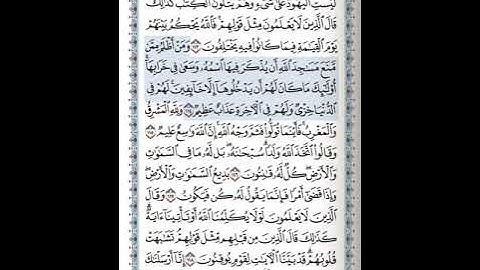 لَيْسَتِ ٱلْيَهُودُ عَلَىٰ شَىْءٍ وَهُمْ يَتْلُونَ ٱلْكِتَٰبَ كَذَٰلِكَ
قَالَ ٱلَّذِينَ لَا يَعْلَمُونَ مِثْلَ قَوْلِهِمْ فَٱللَّهُ يَحْكُمُ بَيْنَهُمْ
يَوْمَ ٱلْقِيَٰمَةِ فِيمَا كَانُوا۟ فِيهِ يَخْتَلِفُونَ ١١٣ وَمَنْ أَظْلَمُ مِمَّن
مَّنَعَ مَسَٰجِدَ ٱللَّهِ أَن يُذْكَرَ فِيهَا ٱسْمُهُۥ وَسَعَىٰ فِى خَرَابِهَآ
أُو۟لَٰٓئِكَ مَا كَانَ لَهُمْ أَن يَدْخُلُوهَآ إِلَّا خَآئِفِينَ لَهُمْ فِى
ٱلدُّنْيَا خِزْىٌ وَلَهُمْ فِى ٱلْءَاخِرَةِ عَذَابٌ عَظِيمٌ ١١٤ وَلِلَّهِ ٱلْمَشْرِقُ
وَٱلْمَغْرِبُ فَأَيْنَمَا تُوَلُّوا۟ فَثَمَّ وَجْهُ ٱللَّهِ إِنَّ ٱللَّهَ وَٰسِعٌ عَلِيمٌ ١١٥
وَقَالُوا۟ ٱتَّخَذَ ٱللَّهُ وَلَدًا سُبْحَٰنَهُۥ بَل لَّهُۥ مَا فِى ٱلسَّمَٰوَٰتِ
وَٱلْأَرْضِ كُلٌّ لَّهُۥ قَٰنِتُونَ ١١٦ بَدِيعُ ٱلسَّمَٰوَٰتِ وَٱلْأَرْضِ
وَإِذَا قَضَىٰٓ أَمْرًا فَإِنَّمَا يَقُولُ لَهُۥ كُن فَيَكُونُ ١١٧ وَقَالَ
ٱلَّذِينَ لَا يَعْلَمُونَ لَوْلَا يُكَلِّمُنَا ٱللَّهُ أَوْ تَأْتِينَآ ءَايَةٌ
كَذَٰلِكَ قَالَ ٱلَّذِينَ مِن قَبْلِهِم مِّثْلَ قَوْلِهِمْ تَشَٰبَهَتْ
قُلُوبُهُمْ قَدْ بَيَّنَّا ٱلْءَايَٰتِ لِقَوْمٍ يُوقِنُونَ ١١٨ إِنَّآ أَرْسَلْنَٰكَ